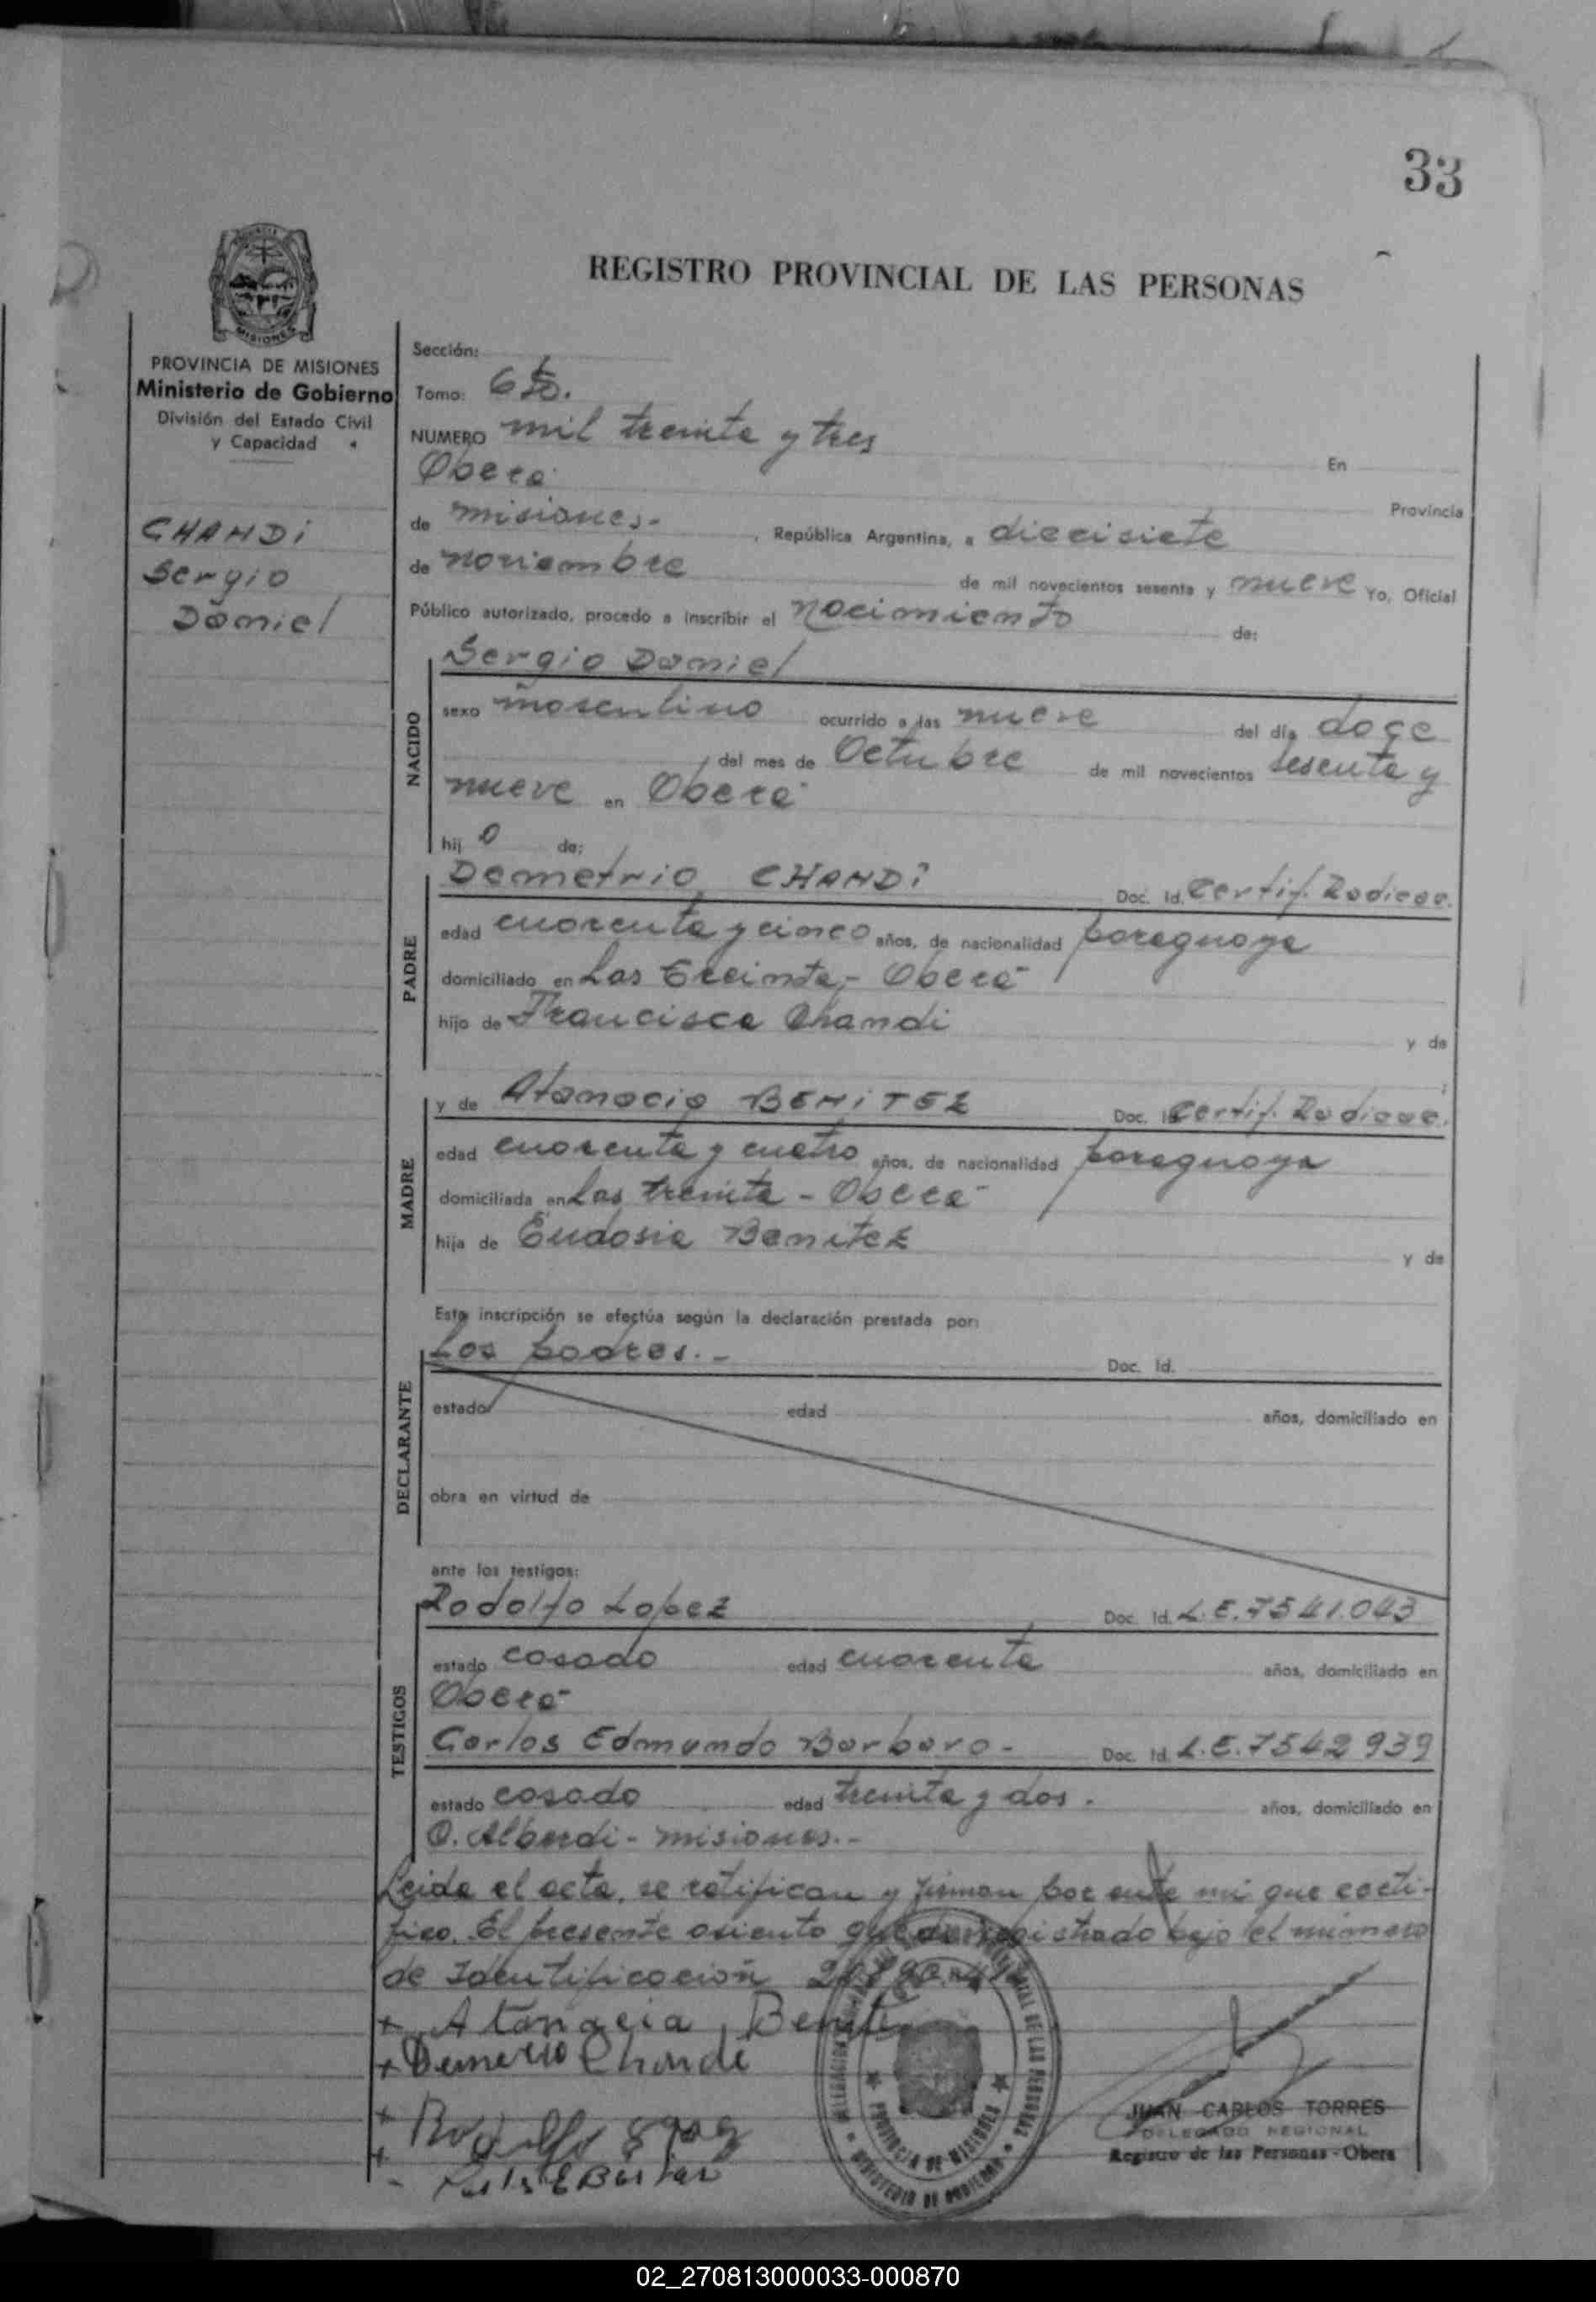 33
REGISTRO PROVINCIAL DE LAS PERSONAS
PROVINCIA DE MISIONES
Ministerio de Gobierno
División del Estado Civil
y Capacidad
CHANDi
Sergio
Daniel
Sección:
Tomo: 6to.
NUMERO mil treinta y tres En
Oberá
Provincia
de misiones.- , República Argentina, a diecisiete
de noviembre de mil novecientos sesenta y nueve Yo, Oficial
Público autorizado, procedo a inscribir el nacimiento de:
NACIDO
Sergio Daniel
sexo masculino ocurrido a las nueve del día doce
del mes de Octubre de mil novecientos sesenta y
nueve en Oberá
hij o de:
PADRE
Demetrio CHANDi Doc. Id. Certif. Radicac.
edad cuarenta y cinco años, de nacionalidad paraguaya
domiciliado en Las Treinta,- Oberá
hijo de Francisca Chandi y de
MADRE
y de Atanacia BENiTEZ Doc. Id. Certif. Radicac.
edad cuarenta y cuatro años, de nacionalidad paraguaya
domiciliada en Las treinta - Oberá
hija de Eudosia Benitez y de
Esta inscripción se efectúa según la declaración prestada por:
DECLARANTE
Los padres.- Doc. Id.
estado edad años, domiciliado en
obra en virtud de
ante los testigos:
TESTIGOS
Rodolfo Lopez Doc. Id. L.E. 7541.043
estado casado edad cuarenta años, domiciliado en
Oberá
Carlos Edmundo Barbaro- Doc. Id. L.E. 7542939
estado casado edad treinta y dos. años, domiciliado en
O. Alberdi - misiones.-
Leida el acta, se ratifican y firman por ante mi que certi-
fico. El presente asiento queda registrado bajo el número
de Identificación
+ Atanacia Benite
+ Demerio Chandi
+ Rodolfo
JUAN CARLOS TORRES
DELEGADO REGIONAL
Registro de las Personas - Obera
PROVINCIA DE MISIONES
MINISTERIO DE GOBIERNO
02_270813000033-000870